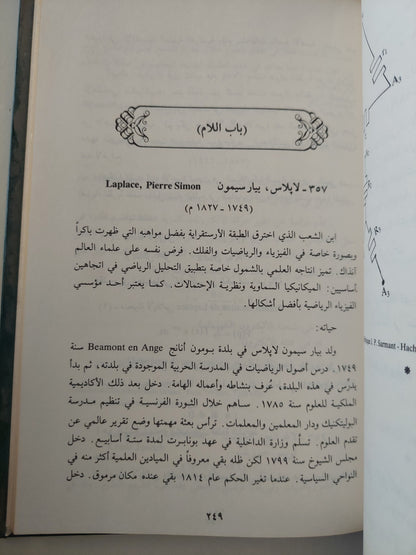 (باب اللام)
٣٥٧ - لاپلاس، پيار سيمون Laplace, Pierre Simon
(١٧٤٩ - ١٨٢٧ م)
ابن الشعب الذي اخترق الطبقة الأرستقراية بفضل مواهبه التي ظهرت باكراً
وبصورة خاصة في الفيزياء والرياضيات والفلك. فرض نفسه على علماء العالم
آنذاك. تميز انتاجه العلمي بالشمول خاصة بتطبيق التحليل الرياضي في اتجاهين
أساسيين: الميكانيكيا السماوية ونظرية الإحتمالات. كما يعتبر أحد مؤسسي
الفيزياء الرياضية بأفضل أشكالها.
حياته:
ولد بيار سيمون لاپلاس في بلدة بومون أنانج Beamont en Ange سنة
١٧٤٩. درس أصول الرياضيات في المدرسة الحربية الموجودة في بلدته، ثم بدأ
يدرِّس في هذه البلدة، عُرف بنشاطه وأعماله الهامة. دخل بعد ذلك الأكاديمية
الملكية للعلوم سنة ١٧٨٥. ساهم خلال الثورة الفرنسية في تنظيم مدرسة
البوليتكنيك ودار المعلمين والمعلمات. ترأس بعثة مهمتها وضع تقرير عالمي عن
تقدم العلوم. تسلَّم وزارة الداخلية في عهد بونابرت لمدة ستة أسابيع. دخل
مجلس الشيوخ سنة ١٧٩٩ لكن ظله بقي معروفاً في الميادين العلمية أكثر منه في
النواحي السياسية. عندما تغير الحكم عام ١٨١٤ بقي عنده مكان مرموق. دخل
٢٤٩
A₃
A₃
P. Sarmant - Hach
*